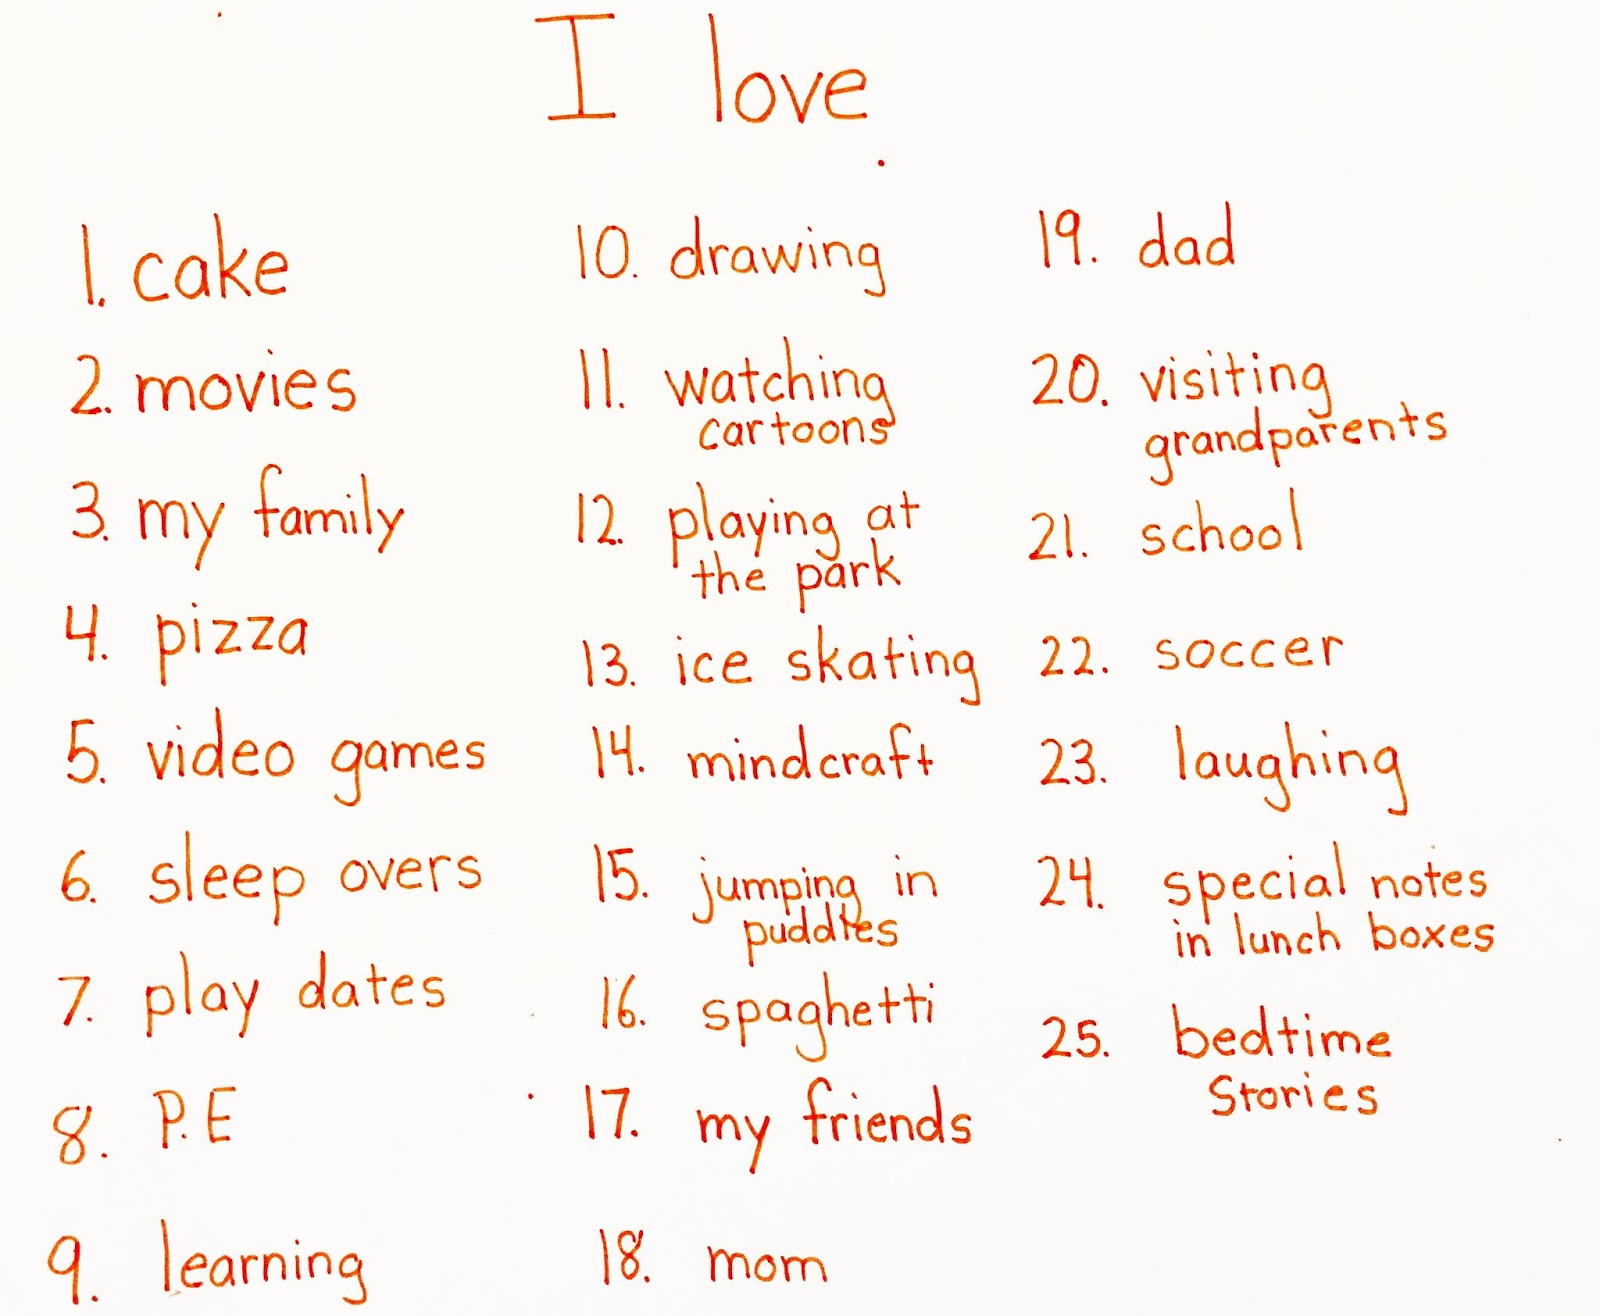 I love
1. cake
2. movies
3. my family
4. pizza
5. video games
6. sleep overs
7. play dates
8. P.E
9. learning
10. drawing
11. watching
cartoons
12. playing at
the park
13. ice skating
14. mindcraft
15. jumping in
puddles
16. spaghetti
17. my friends
18. mom
19. dad
20. visiting
grandparents
21. school
22. soccer
23. laughing
24. special notes
in lunch boxes
25. bedtime
Stories